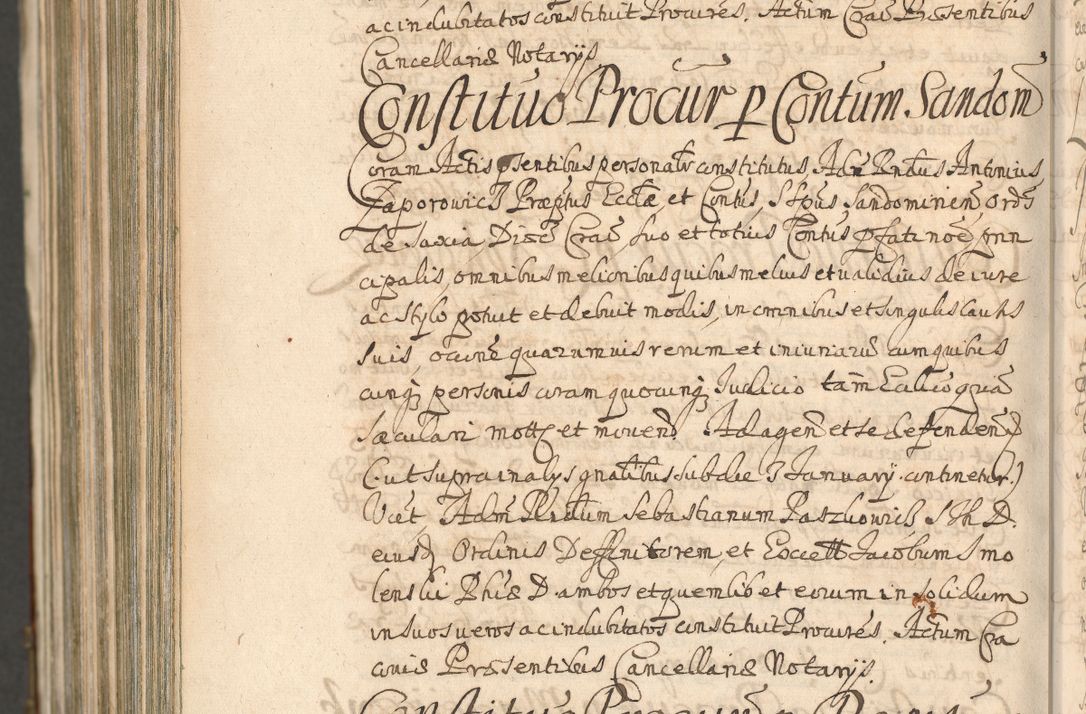 ac indubitatos constituit Procures. Actum Crac Præsentibus
Cancellariæ Notarijs
Constituō Procur p Contum Sandom
Coram Actis psentibus personalr constitutus, Adm Rndus Antonius
Zaporowicz Præptus Ecclæ, et Contus, S Spus Sandominien, Ords
de Saxia, Disc Crac, suo et totius Contus pfati noe, prin
cipalis, omnibus melioribus quibus melius et validius de iure
ac stylo potuit et debuit modis, in omnibus et singulis causis
suis, occne quarumvis rerum et iniuriarū cum quibus
cunq personis coram quocunq Iudicio tam Ecclico quā
sæculari mottz et movend. Ad agend et se defenden
(: ut supra in alys gnalibus sub die 3 January continetur:)
Vict, Adm Rndum Sebastianum Paszkowicz S Th D.
eiusd Ordinis Deffinitorem, et Excell Jacobum Smo
lenski Phiæ D. ambos et quemlib et eorum in solidum
in suos veros ac indubitatos constituit Procures. Actum Cra
coviæ Præsentibus Cancellariæ Notarijs.